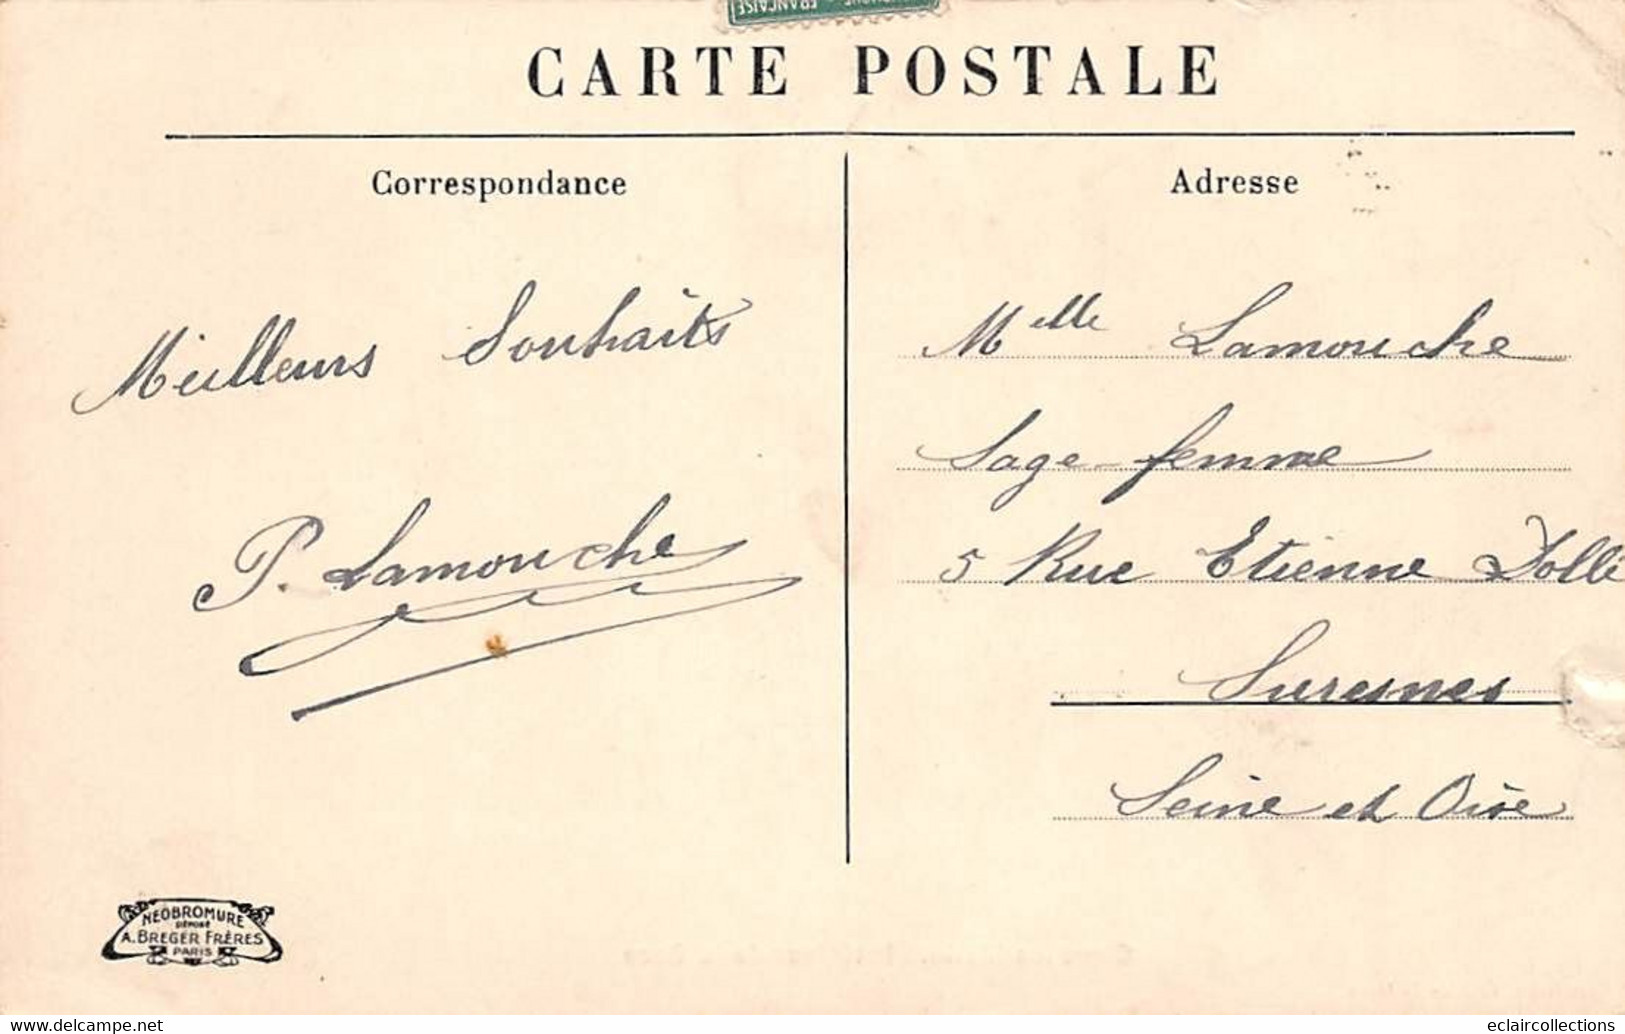 FRANÇAISE
CARTE POSTALE
Correspondance
Adresse
Meilleurs Souhaits
P. Lamouche
Melle Lamouche
Sage-femme
5 Rue Etienne Dolli
Suresnes
Seine et Oise
NEOBROMURE
DÉPOSÉ
A. BREGER FRÈRES
PARIS
https://www.delcampe.net
eclaircollections